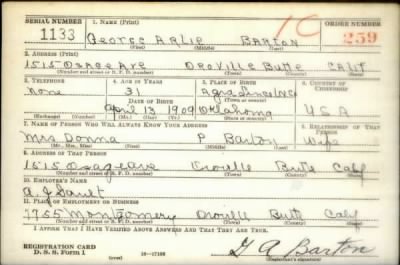 SERIAL NUMBER 1. NAME (Print) ORDER NUMBER
1133 George Arlie Barton 10 259
(First) (Middle) (Last)
2. ADDRESS (Print)
1515 Osage Ave Oroville Butte Calif
(Number and street or R. F. D. number) (Town) (County) (State)
3. TELEPHONE 4. AGE IN YEARS 5. PLACE OF BIRTH 6. COUNTRY OF CITIZENSHIP
None 31 Agra
DATE OF BIRTH (Town) (County)
April 13 1909 Oklahoma USA
(Exchange) (Number) (Mo.) (Day) (Yr.) (State or country)
7. NAME OF PERSON WHO WILL ALWAYS KNOW YOUR ADDRESS 8. RELATIONSHIP OF THAT PERSON
Mrs Donna P Barton Wife
(Mr., Mrs., Miss) (First) (Middle) (Last)
9. ADDRESS OF THAT PERSON
1515 Osage ave Oroville Butte Calif
(Number and street or R. F. D. number) (Town) (County) (State)
10. EMPLOYER'S NAME
A. J. Sault
11. PLACE OF EMPLOYMENT OR BUSINESS
1755 Montgomery Oroville Butte Calif
(Number and street or R. F. D. number) (Town) (County) (State)
I AFFIRM THAT I HAVE VERIFIED ABOVE ANSWERS AND THAT THEY ARE TRUE.
REGISTRATION CARD
D. S. S. Form 1 16—17105 G A Barton
(Registrant's signature)